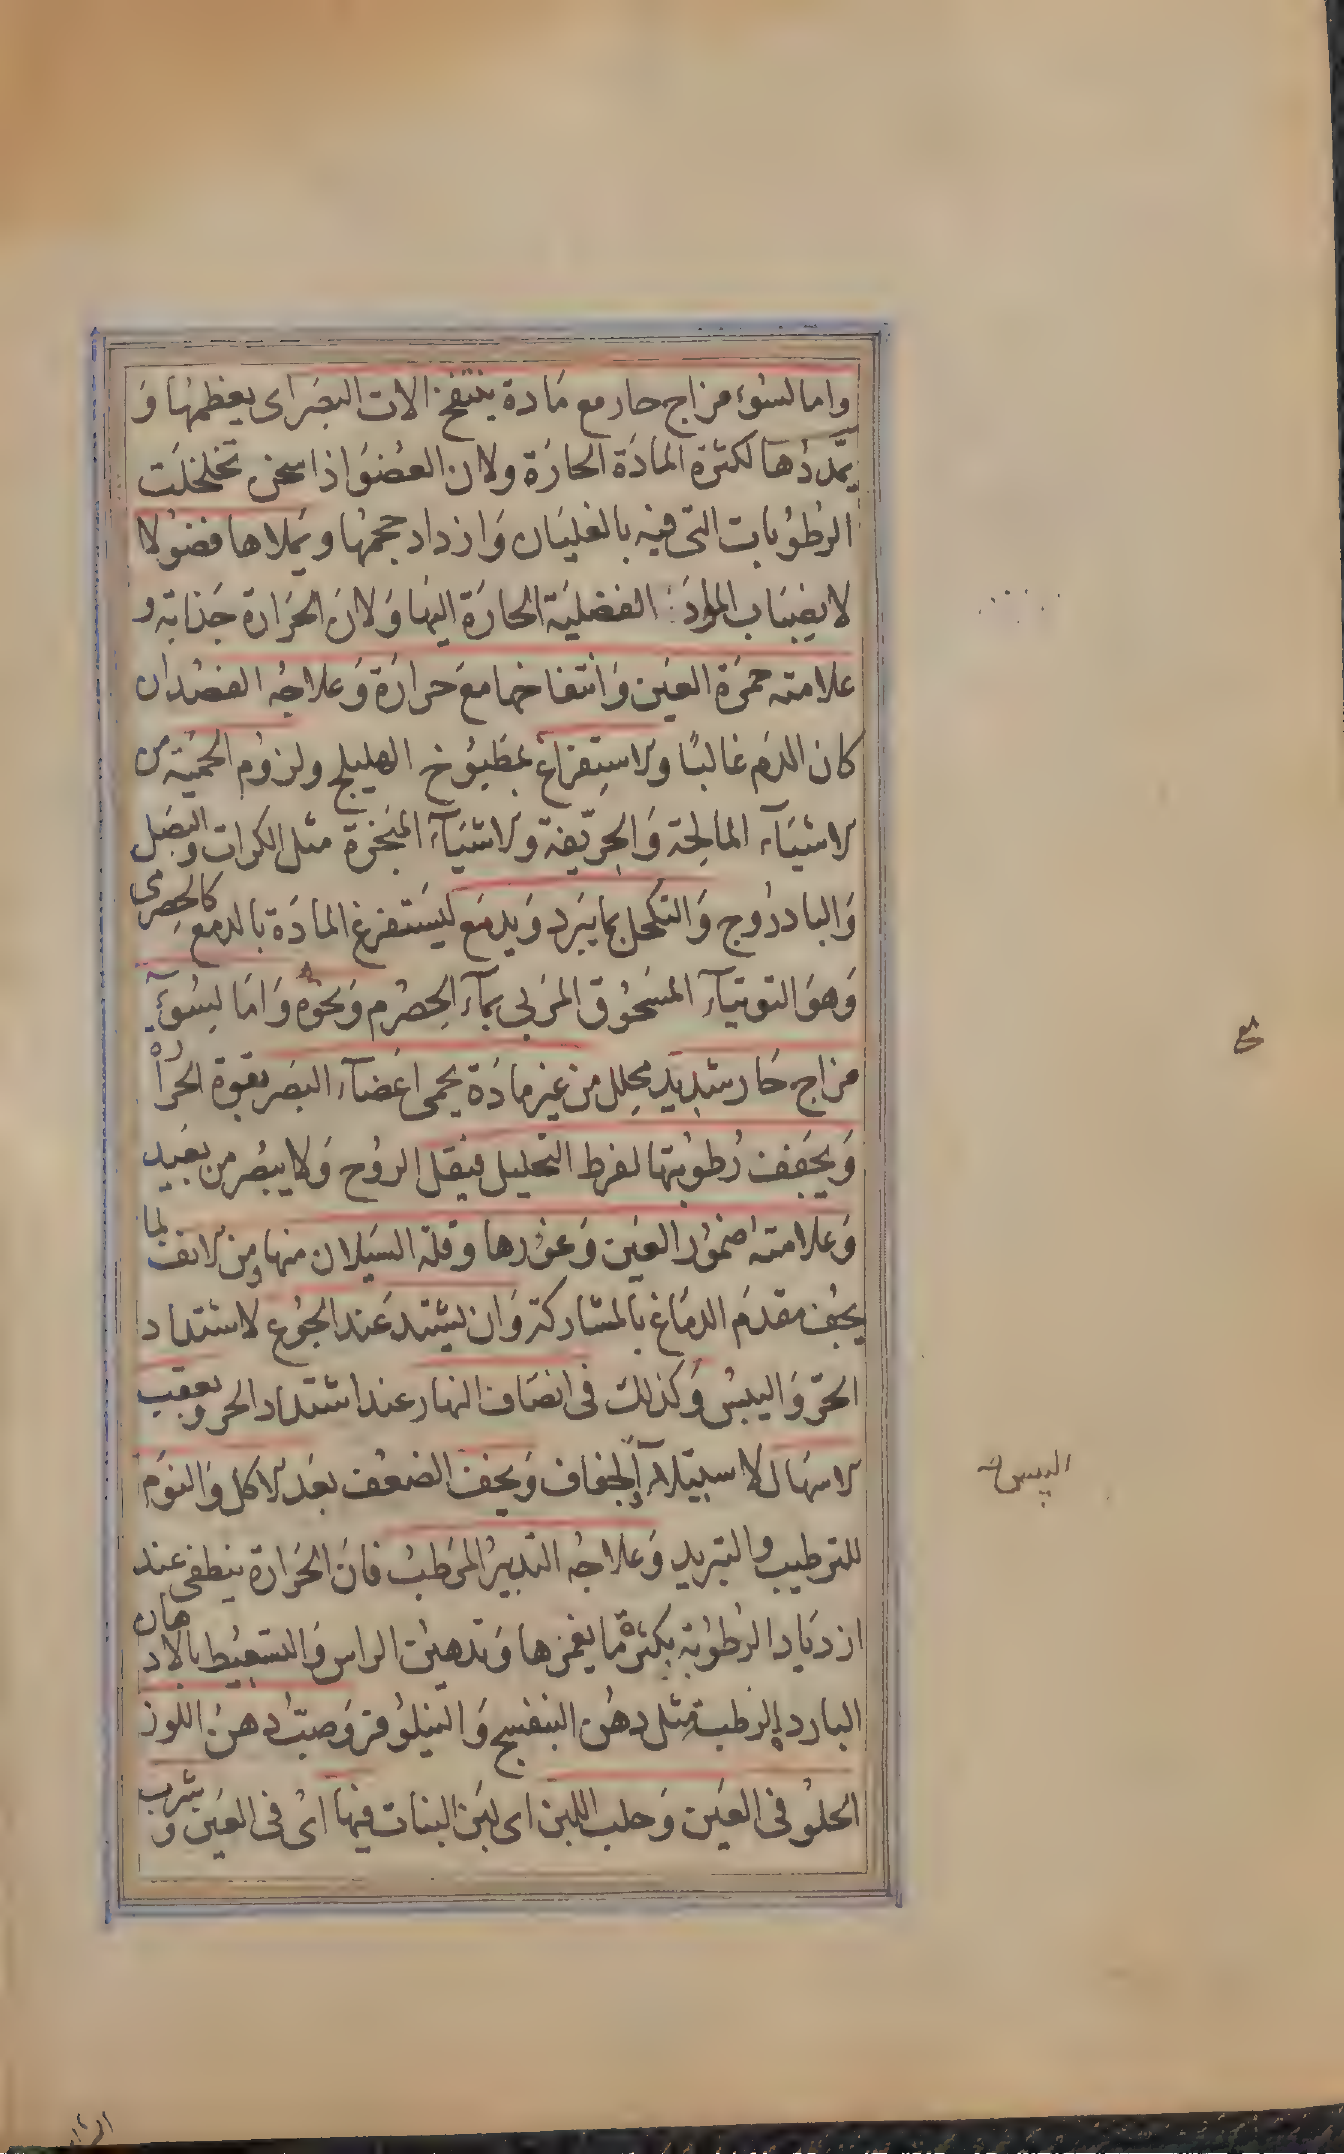 واما لسُوء مزاج حار مع مَادة ينتفخ الات البصَر اى يعظمهَا وَ
يمّددُهَا لكثرة المادَة الحارَة ولان العضوَ اذا سخن تخلخلَت
الرطوُبات التى فيه بالغليَان وَازداد حجمهُا ويَملاها فضوُلا
لانصبَاب الموادَ الفضليَة الحارَة اليهَا وَلانَ الحَرارة جَذابَة و
علامته حمرَة العيَن وَانتفاخها معَ حَرارَة وَعلاجُه الفصدُ ان
كان الدَم غالبًا والاستِفراغ بمَطبوُخ الهليلج ولزوُم الحميَة من
الاشيَآء المالِحَة وَالحِرّيفة والاشيَآء المبَخرة مثل الكراث والبصَل
وَالبادرُوج وَالتكحل بما يَبرد وَيدمَع ليَستفرغ المادَة بالدمع كالحصرمى
وَهوَ التوتيَآء المسَحُوق المربى بمآء الحِصرُم وَنحوُه وَامَا لِسُوَء
مزاج حَار شديد محِلل من غير مادَة يحمى اعَضآء البصَر بقوة الحَرارة
وَيجَفف رُطوبتها لفرط التحليل فيقل الروُح وَلا يبصُر من بعَيد
وَعلامته ضموُر العيَن وَغوُرها وقلة السَيلان منها ومن الانف لما
يجف مقدَم الدمَاغ بالمشاركة وَان يشتد عَند الجوُع لاشتداد
الحَرّ وَاليبسُ وَكذلك فى انصَاف النهار عند اشتداد الحر وبعقب
الاسهَال لاستيلآء الجفاف وَيخف الضعف بعَد الاكل وَالنوَم
للترطيب والتبريد وَعلاجُه التدبيرُ المرَطبُ فانَ الحَرارة ينطفى عند
ازديَاد الرُطوُبة بكثرة مَا يغمرها وَتدهين الراس وَالتسعيُط بالادهان
البارد الرطبة مثل دهُن البنفسج وَالنيلوُفر وَصبّ دهن اللوز
الحلوُ فى العيَن وَحلب اللبن اى لبَن البنات فيهَا اىُ فى العيَن وشرب
اليبس